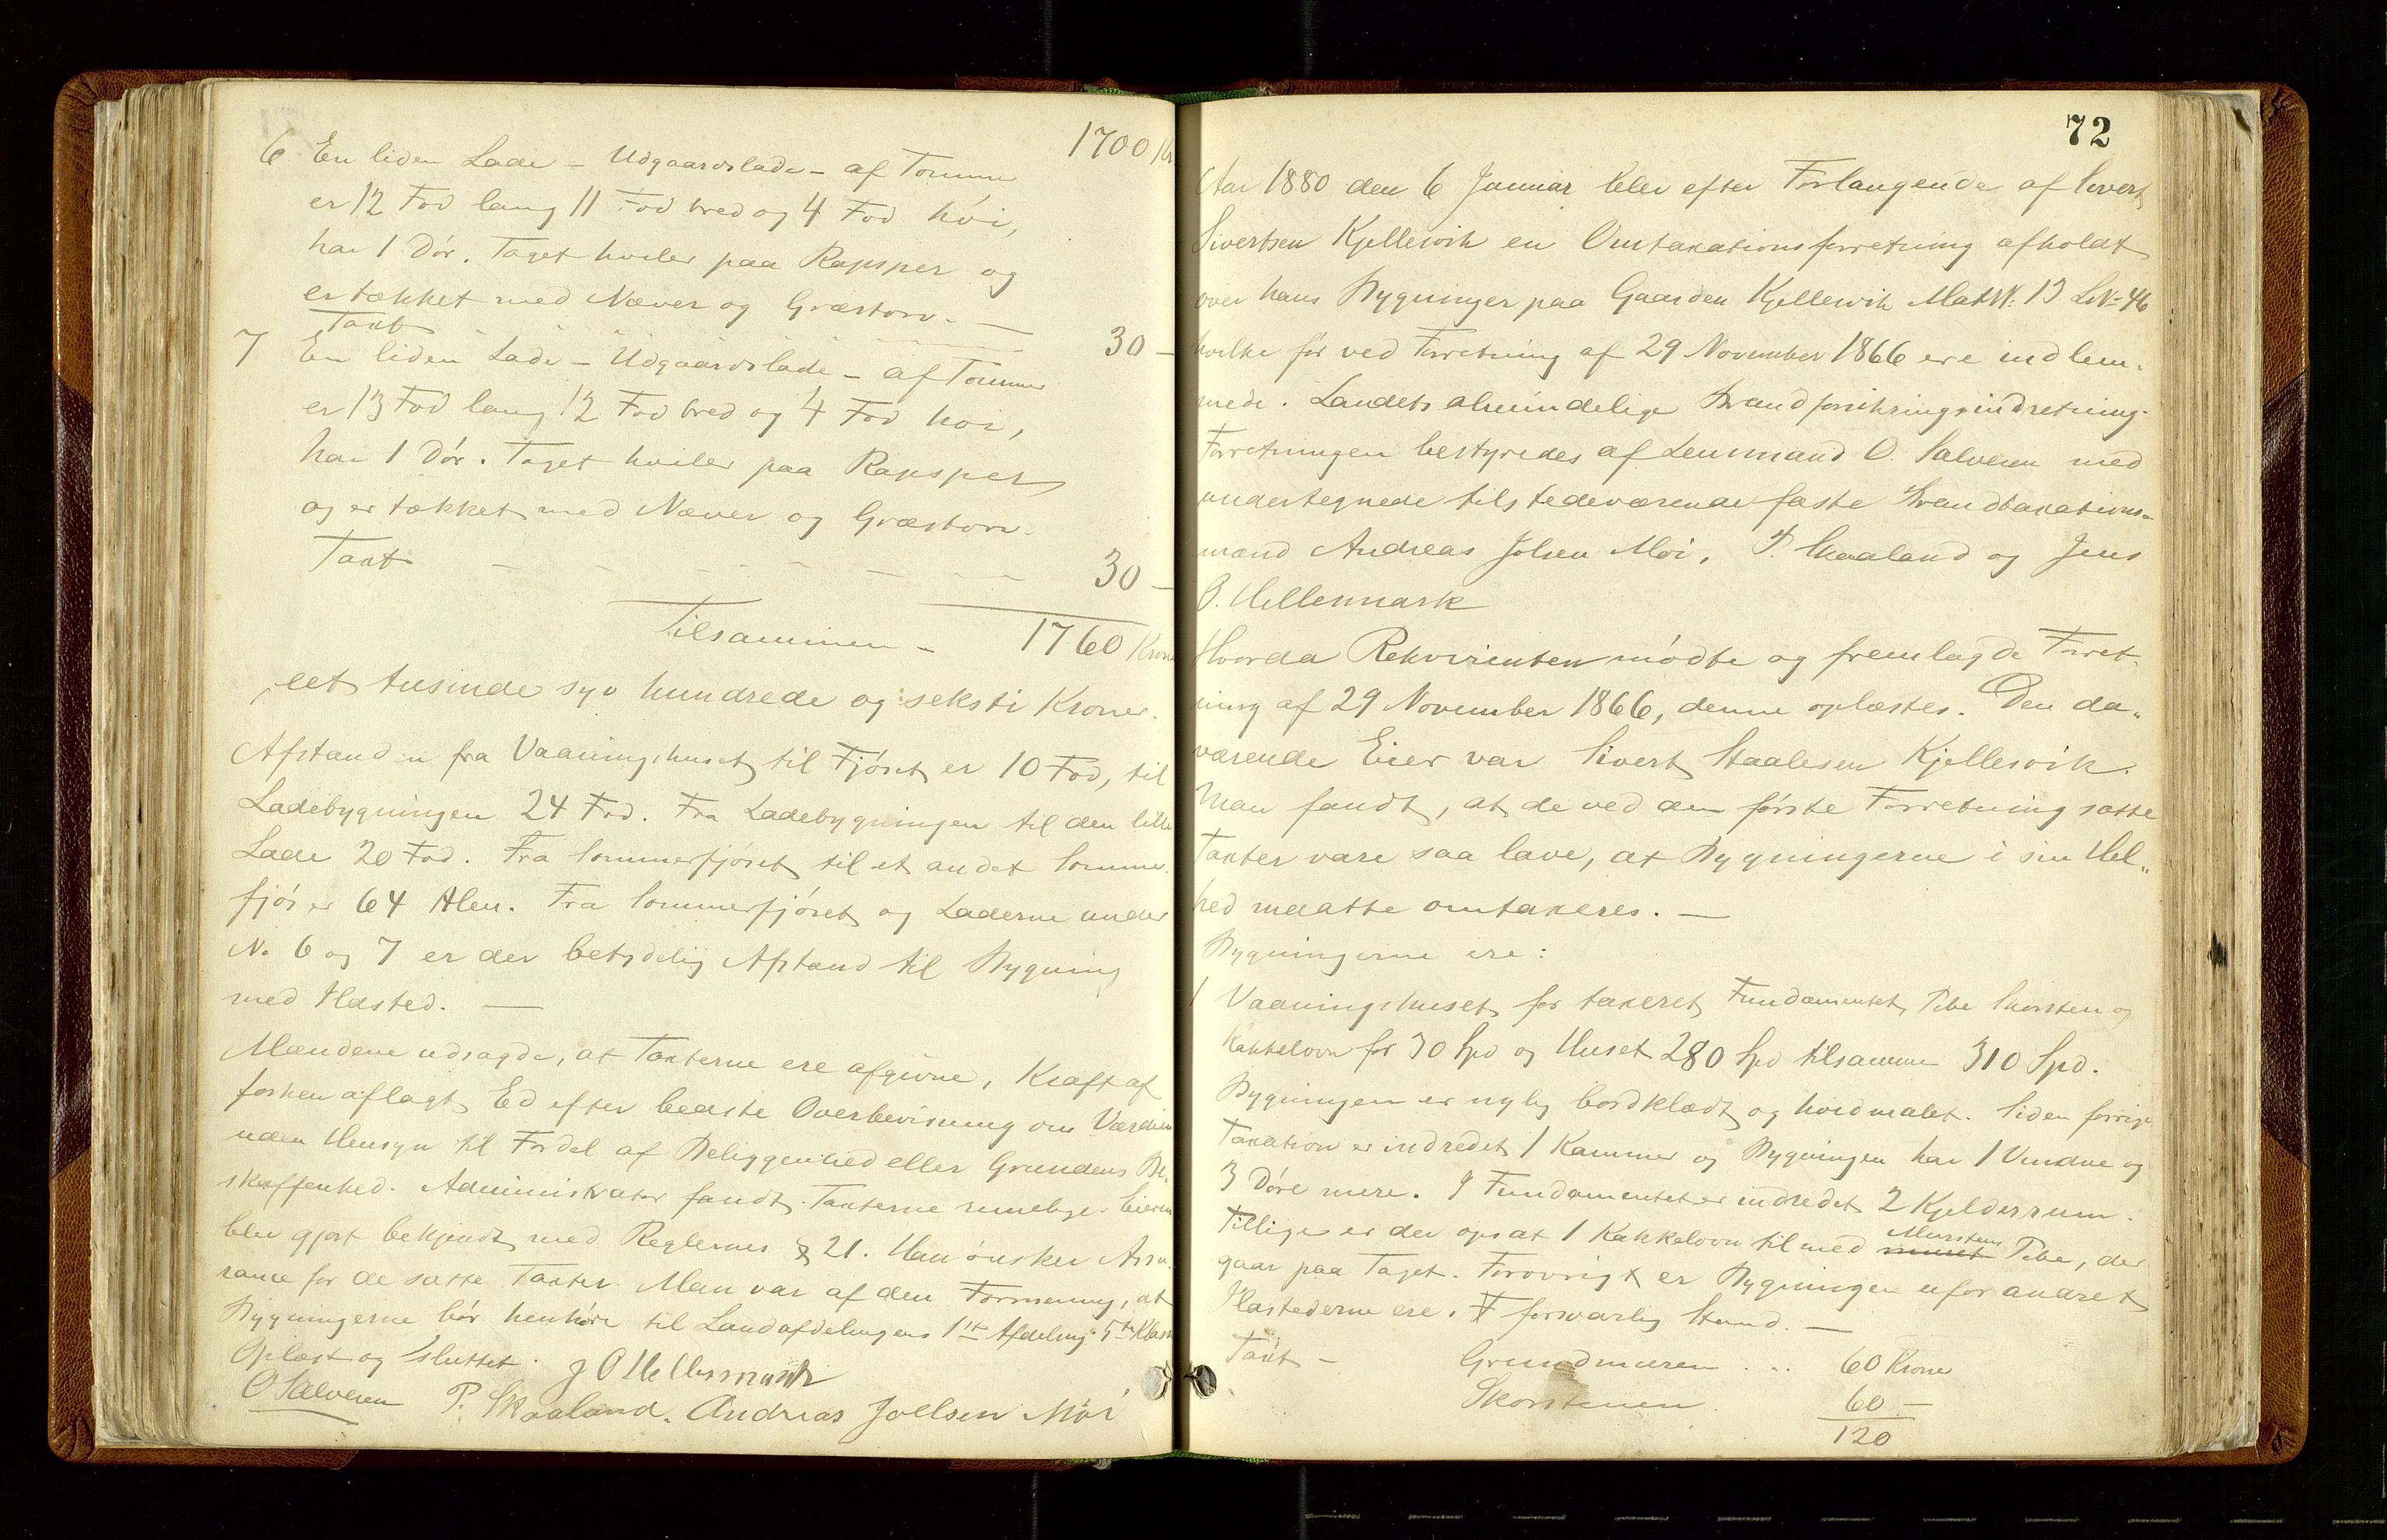 1700 Kr.
6 En liden Lade – Udgaardslade – af Tømmer
er 12 Fod lang 11 Fod bred og 4 Fod høi,
har 1 Dør. Taget hviler paa Rapsper og
er tækket med Næver og Græstorv. —
Taxt 30 –
7 En liden Lade – Udgaardslade – af Tømmer
er 13 Fod lang 12 Fod bred og 4 Fod høi,
har 1 Dør. Taget hviler paa Rapsper
og er tækket med Næver og Græstorv.
Taxt – – – – – – – 30 –
Tilsammen – 1760 Kroner
eet tusinde syv hundrede og seksti Kroner.
Afstanden fra Vaaningshuset til Fjøset er 10 Fod, til
Ladebygningen 24 Fod. Fra Ladebygningen til den lille
Lade 20 Fod. Fra Sommerfjøset til et andet Sommer-
fjøs er 64 Alen. Fra Sommerfjøset og Laderne under
No 6 og 7 er der betydelig Afstand til Bygning
med Ildsted. —
Mændene udsagde, at Taxterne ere afgivne i Kraft af
forhen aflagt Ed efter bedste Overbevisning om Værdien
uden Hensyn til Fordel af Beliggenhed eller Grundens Be-
skaffenhed. Administrator fandt Taxterne rimelige. Eieren
blev gjort bekjendt med Reglernes § 21. Han ønsker Assu-
rance for de satte Taxter. Man var af den Formening, at
Bygningerne bør henhøre til Landafdelingens 1ste Afdeling 5te Klasse
Oplæst og sluttet.
J O Hellesmark
O Salvesen P. Skaaland. Andreas Joelsen Moi
72
Aar 1880 den 6 Januar blev efter Forlangende af Sivert
Sivertsen Kjellesvik en Omtaxationsforretning afholdt
over hans Bygninger paa Gaarden Kjellesvik Mat№ 13 L№ 46
hvilke før ved Forretning af 29 November 1866 ere indlem-
mede i Landets almindelige Brandforsikringsindretning.
Forretningen bestyredes af Lensmand O. Salvesen med
undertegnede tilstedeværende faste Brandtaxations-
mænd Andreas Jolsen Moi, P. Skaaland og Jens
O. Hellesmark
Hvorda Rekvirenten mødte og fremlagde Forret-
ning af 29 November 1866, denne oplæstes. Den da-
værende Eier var Sivert Staalesen Kjellesvik.
Man fandt, at de ved den første Forretning satte
Taxter vare saa lave, at Bygningerne i sin Hel-
hed maatte omtaxeres. —
Bygningerne ere:
1 Vaaningshuset før taxeret Fundamentet, Pibe Skorsten og
Kakkelovn for 30 Spd og Huset 280 Spd tilsammen 310 Spd.
Bygningen er nylig bordklædt og hvidmalet. Siden forrige
Taxation er indredet 1 Kammer og Bygningen har 1 Vindue og
3 Døre mere. I Fundamentet er indredet 2 Kjelderrum.
Tillige er der opsat 1 Kakkelovn til med muret Murstens Pibe, der
gaar paa Taget. Forøvrigt er Bygningen uforandret
Ildstederne ere i forsvarlig Stand. —
Taxt – Grundmuren . .. 60 Kroner
Skorstenen . 60 –
120